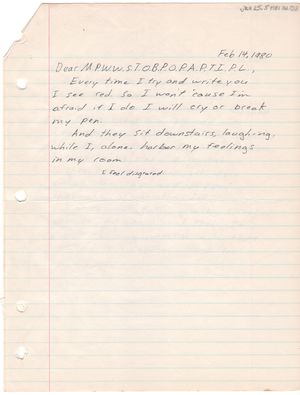 Feb 14, 1980
Dear M.P.W.W.S.T.O.B.P.O.P.A.P.T.I.P.L.,
Every time I try and write you
I see red. So I won't 'cause I'm
afraid if I do I will cry or break
my pen.
And they sit downstairs, laughing,
while I, alone, harbor my feelings
in my room.
I feel disgraced.